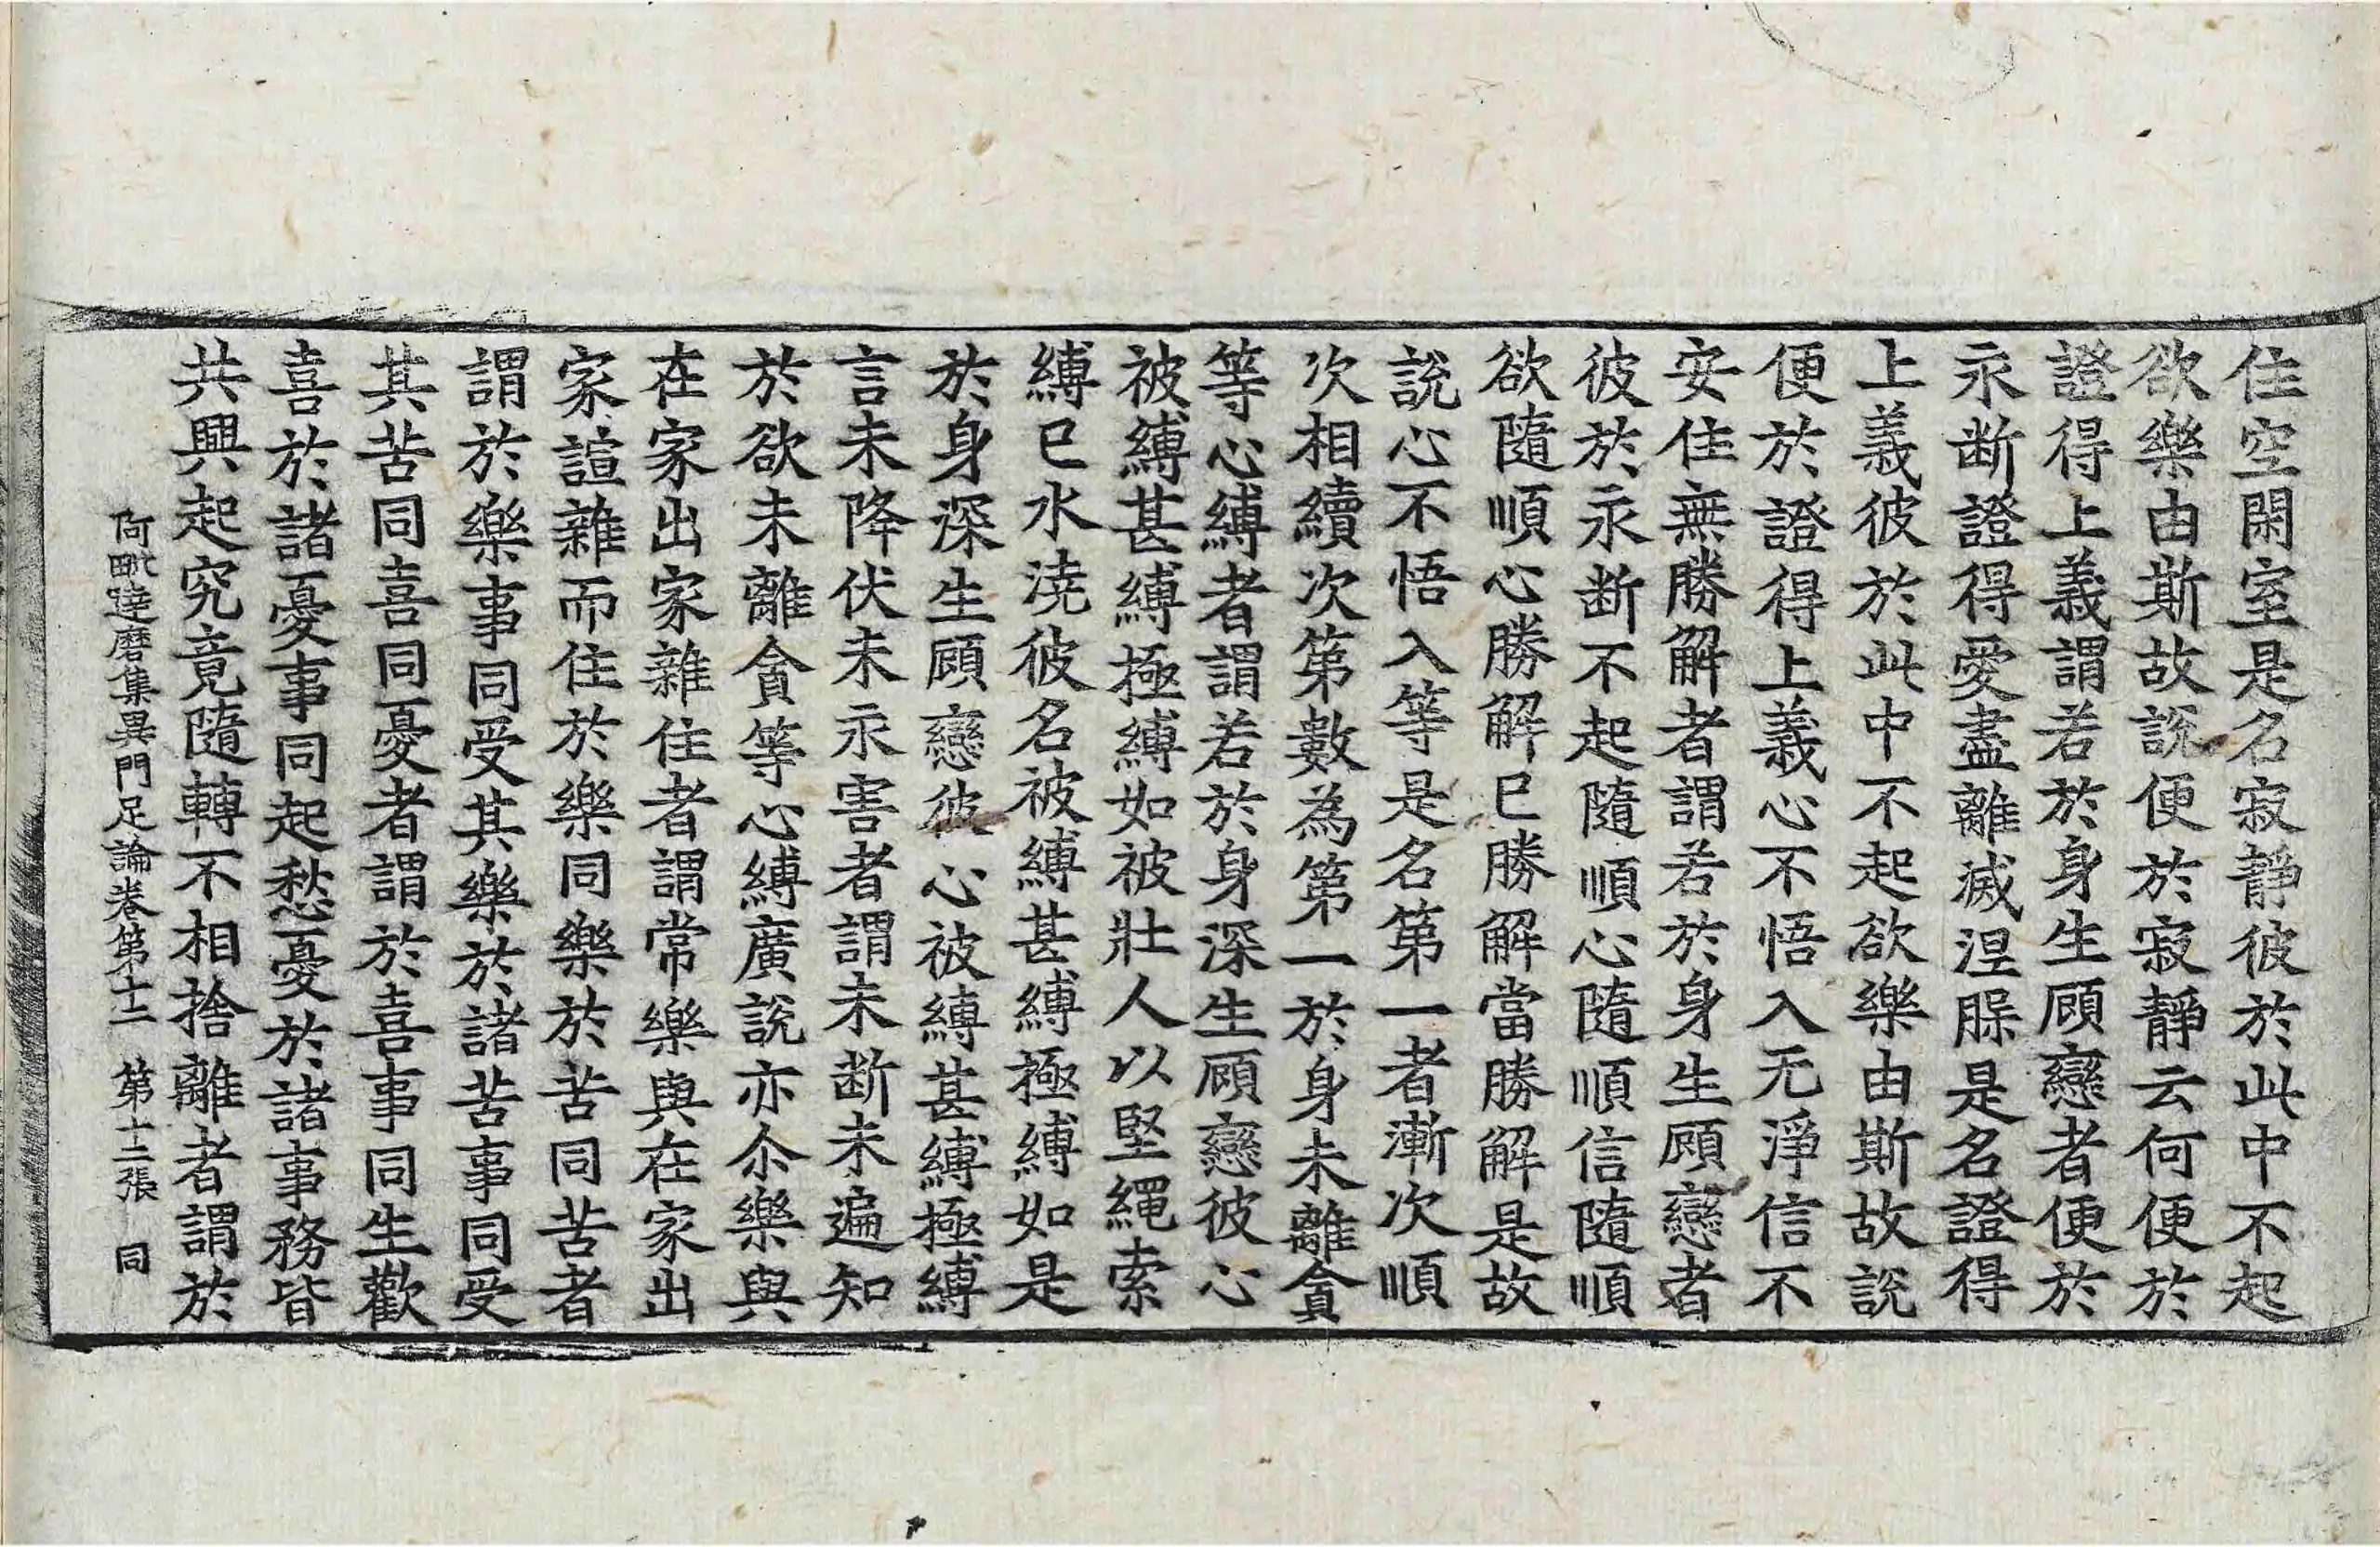 住空閑室是名寂靜彼於此中不起
欲樂由斯故說便於寂靜云何便於
證得上義謂若於身生顧戀者便於
永断證得愛盡離滅涅槃是名證得
上義彼於此中不起欲樂由斯故說
便於證得上義心不悟入无淨信不
安住無勝解者謂若於身生顧戀者
彼於永断不起隨順心隨順信隨順
欲隨順心勝解已勝解當勝解是故
說心不悟入等是名第一者漸次順
次相續次第數為第一於身未離貪
等心縛者謂若於身深生顧戀彼心
被縛甚縛極縛如被壯人以堅繩索
縛已水澆彼名被縛甚縛極縛如是
於身深生顧戀彼心被縛甚縛極縛
言未降伏未永害者謂未断未遍知
於欲未離貪等心縛廣說亦尒樂與
在家出家雜住者謂常樂與在家出
家諠雜而住於樂同樂於苦同苦者
謂於樂事同受其樂於諸苦事同受
其苦同喜同憂者謂於喜事同生歡
喜於諸憂事同起愁憂於諸事務皆
共興起究竟隨轉不相捨離者謂於
阿毗達磨集異門足論卷第十二 第十二張 同